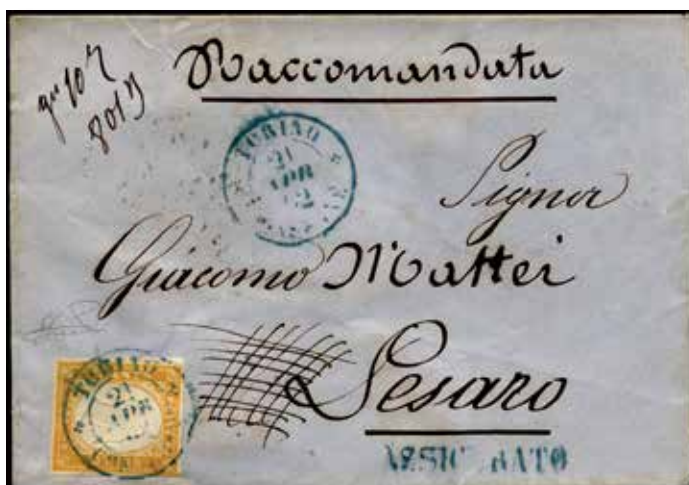 Raccomandata
TORINO
21
APR
Signor
Giacomo Mattei
Pesaro
TORINO
21
APR
ASSIC RATO